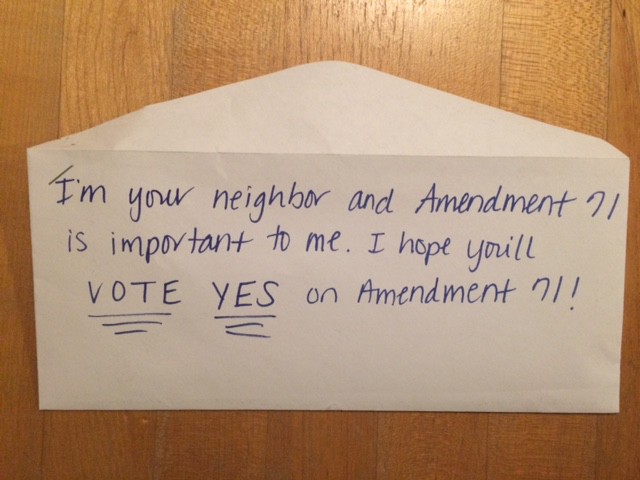 I'm your neighbor and Amendment 71
is important to me. I hope you'll
VOTE YES on Amendment 71!